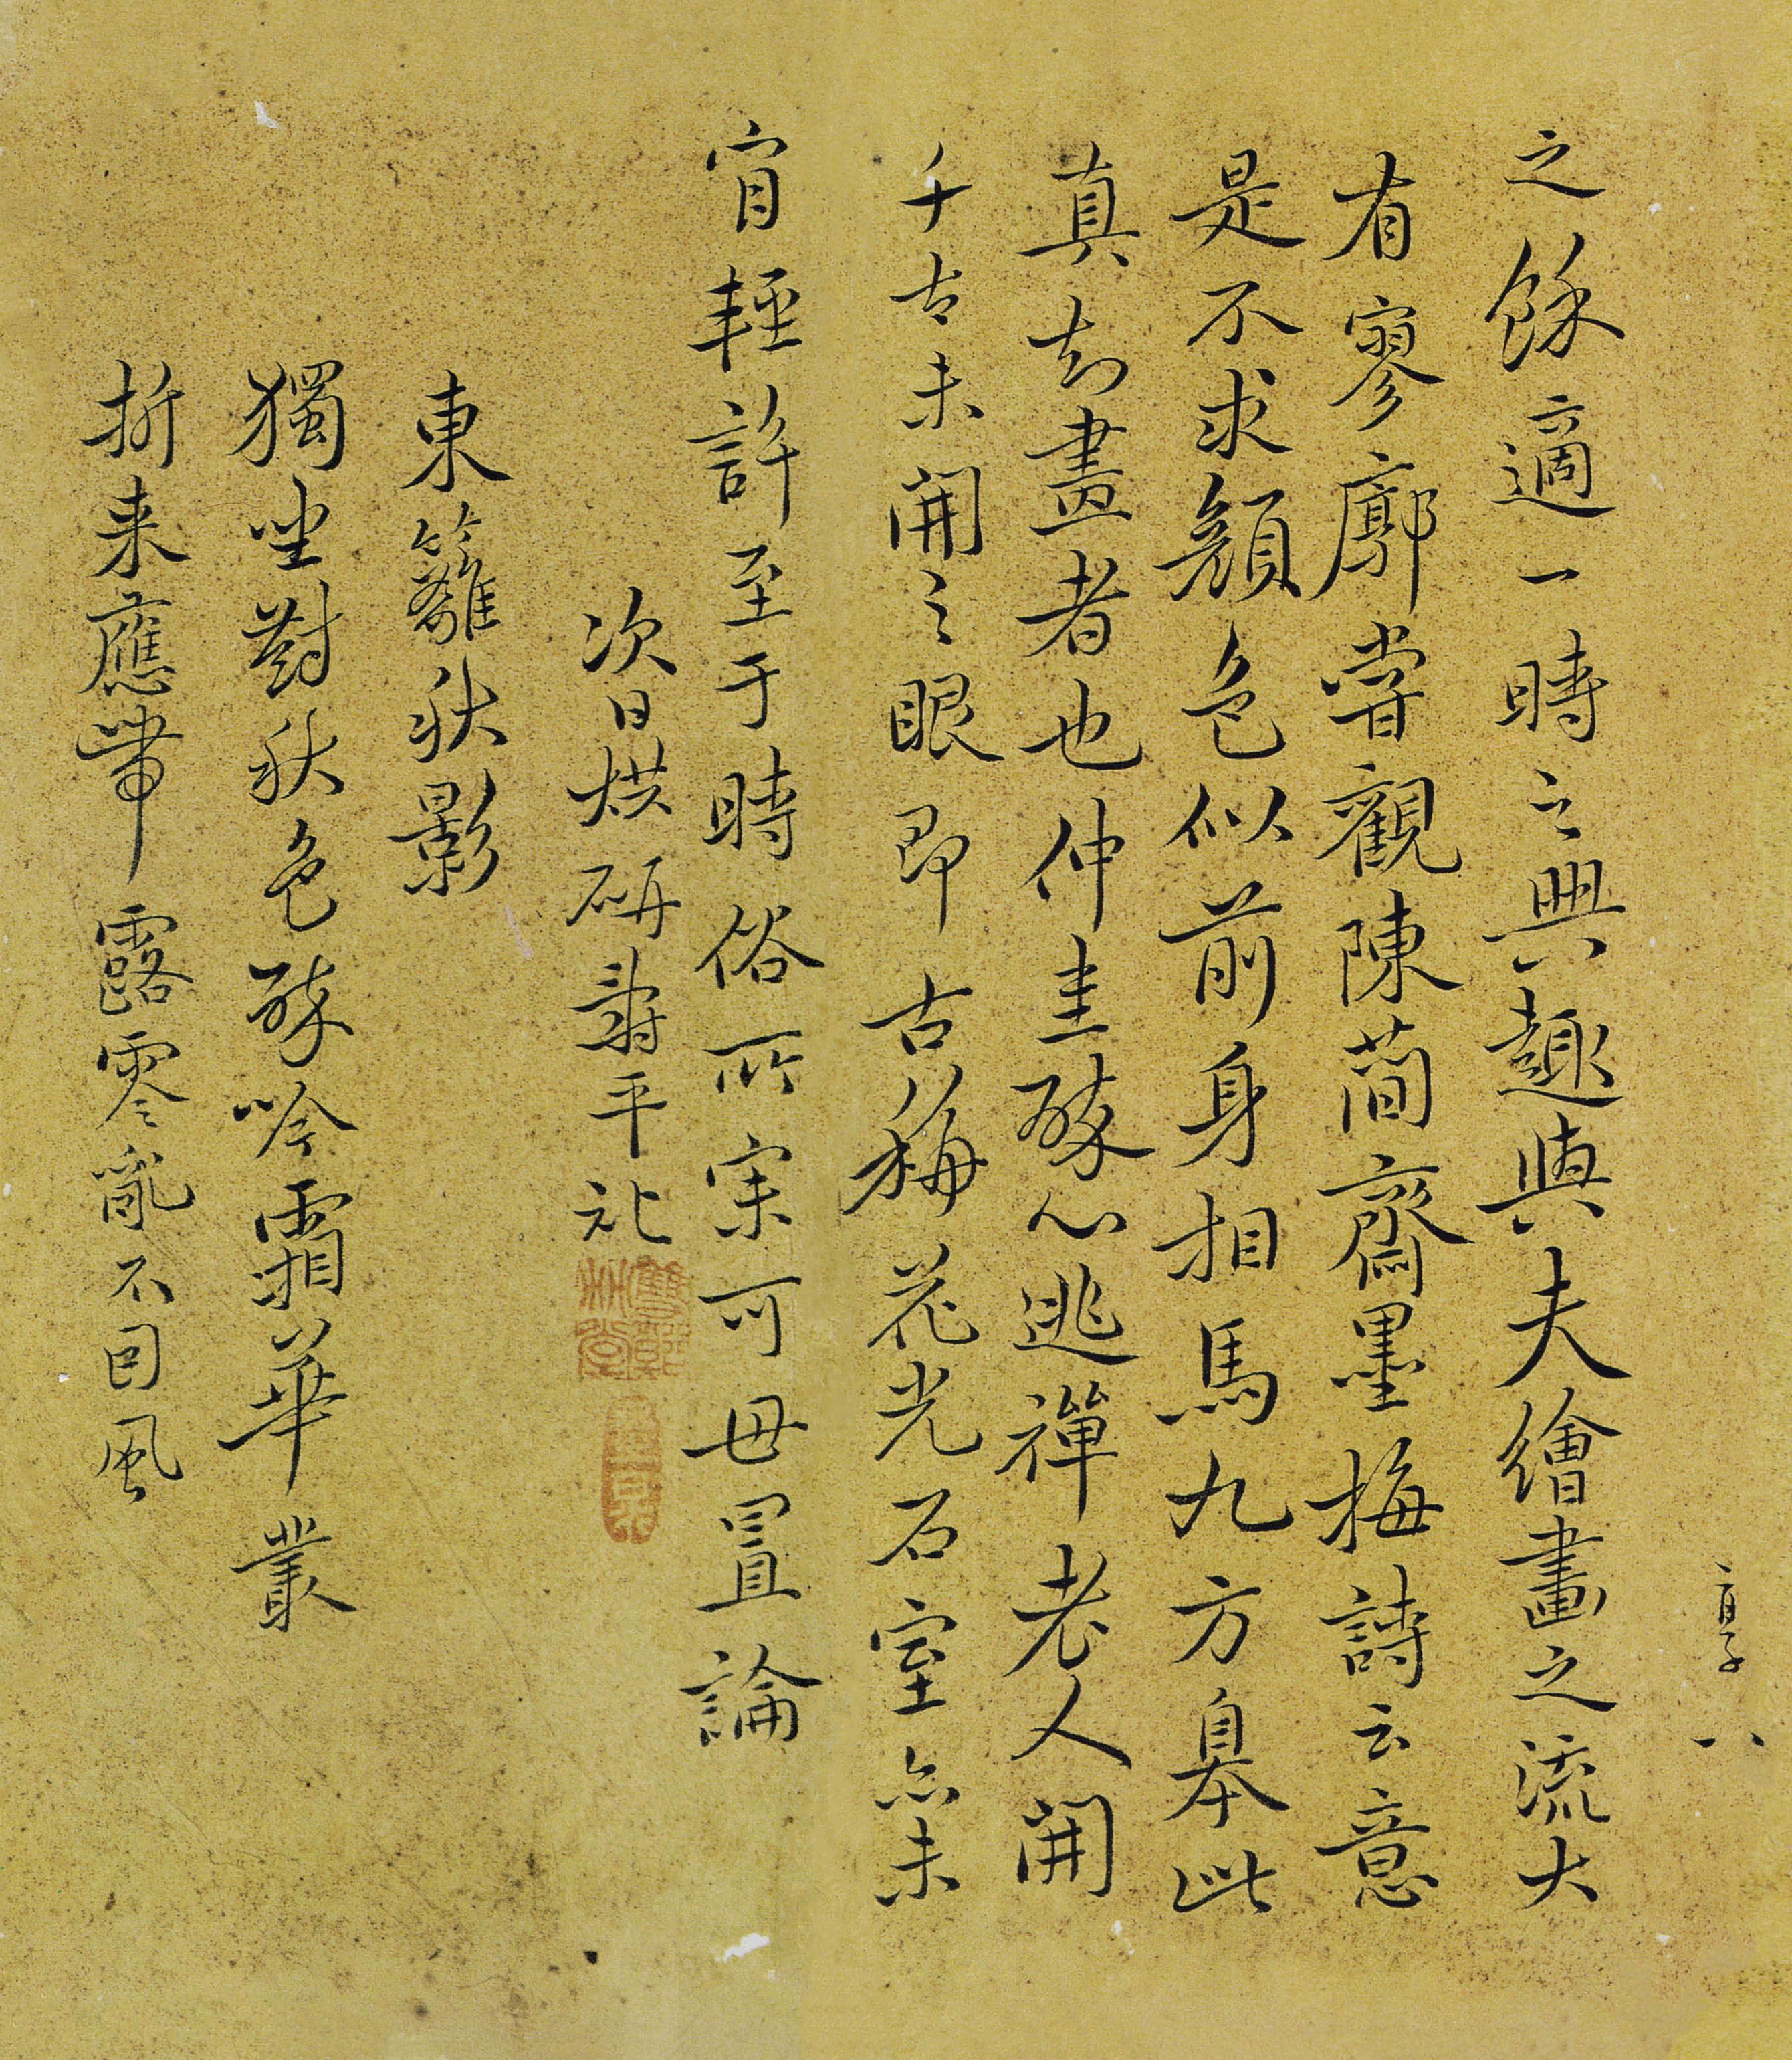 享八
之餘適一時之興趣與夫繪畫之流大
有寥廓嘗觀陳蕳齋墨梅詩云意
是不求顏色似前身相馬九方皋此
真知畫者也仲圭殊心逃禪老人開
千古未開之眼即古梅花光石室亦未
肯輕許至于時俗所宗可毋置論
次日烘研壽平記
東籬秋影
獨坐對秋色醉吟霜華叢
折来應帶露零亂不因風